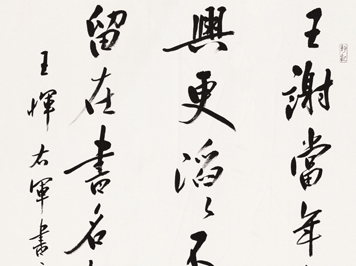 王謝當年
興更滔滔不
留在書名
王惲右軍書